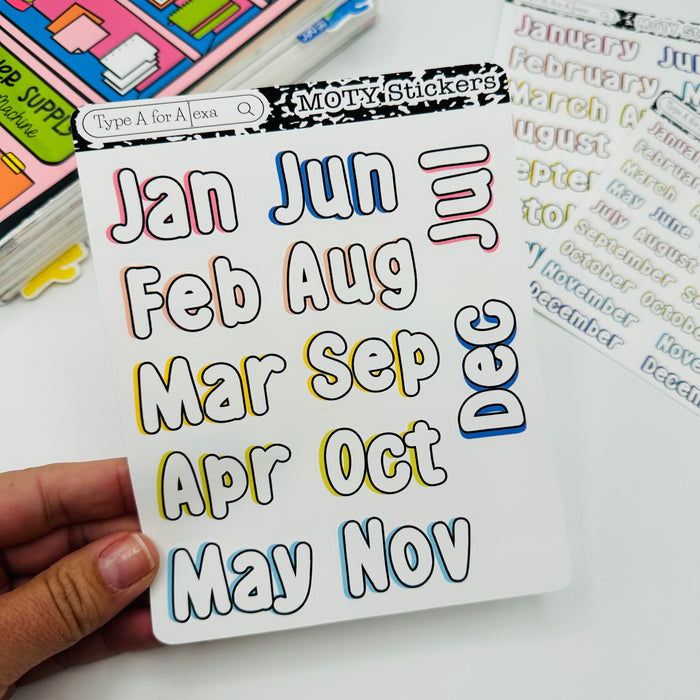 Type A for Alexa
MOTY Stickers
Jan Jun Jul
Feb Aug
Mar Sep Dec
Apr Oct
May Nov
Type A for Alexa
MOTY
January
February
March
August
January
February
March
May June
July August
September
October October
November
December
Machine